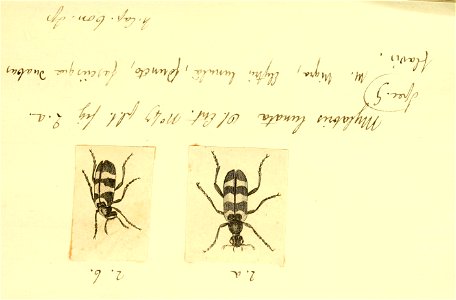 2.a 2.b.
Mylabris lunata Ol. Ent. No 47 pl.1. fig 2.a
Spec. 5)
M. nigra, Elytris lunulâ, puncto, fasciisque duabus
flavis.
h. Cap. bon. sp